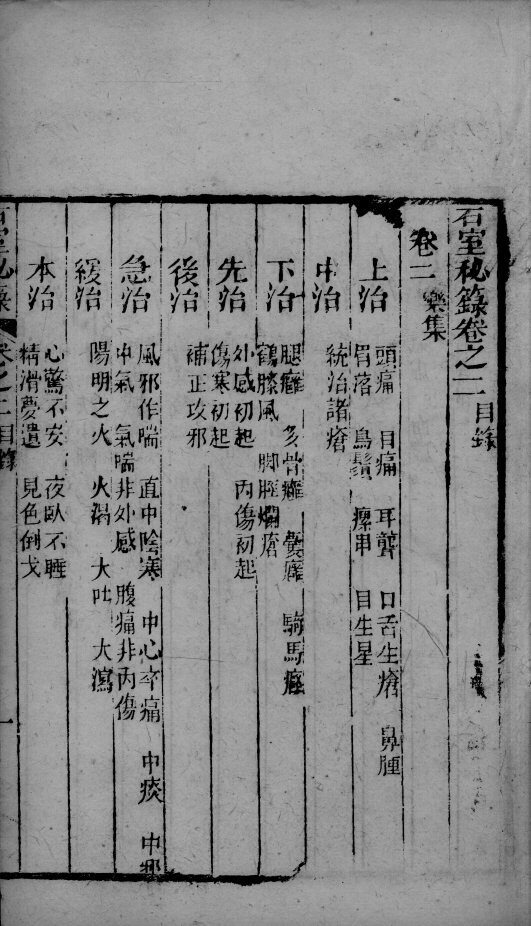 石室秘籙卷之二 目錄
卷二 樂集
上治 頭痛 目痛 耳聾 口舌生瘡 鼻腫
眉落 烏鬚 瘰串 目生星
中治 統治諸瘡
下治 腿癰 多骨癰 囊癰 騎馬癰
鶴膝風 脚脛爛瘡
先治 外感初起 內傷初起
傷寒初起
後治 補正攻邪
急治 風邪作喘 直中陰寒 中心卒痛 中痰 中邪
中氣 氣喘非外感 腹痛非內傷
緩治 陽明之火 火渴 大吐 大瀉
本治 心驚不安 夜臥不睡
精滑夢遺 見色倒戈
石室秘籙 卷之二目錄 一